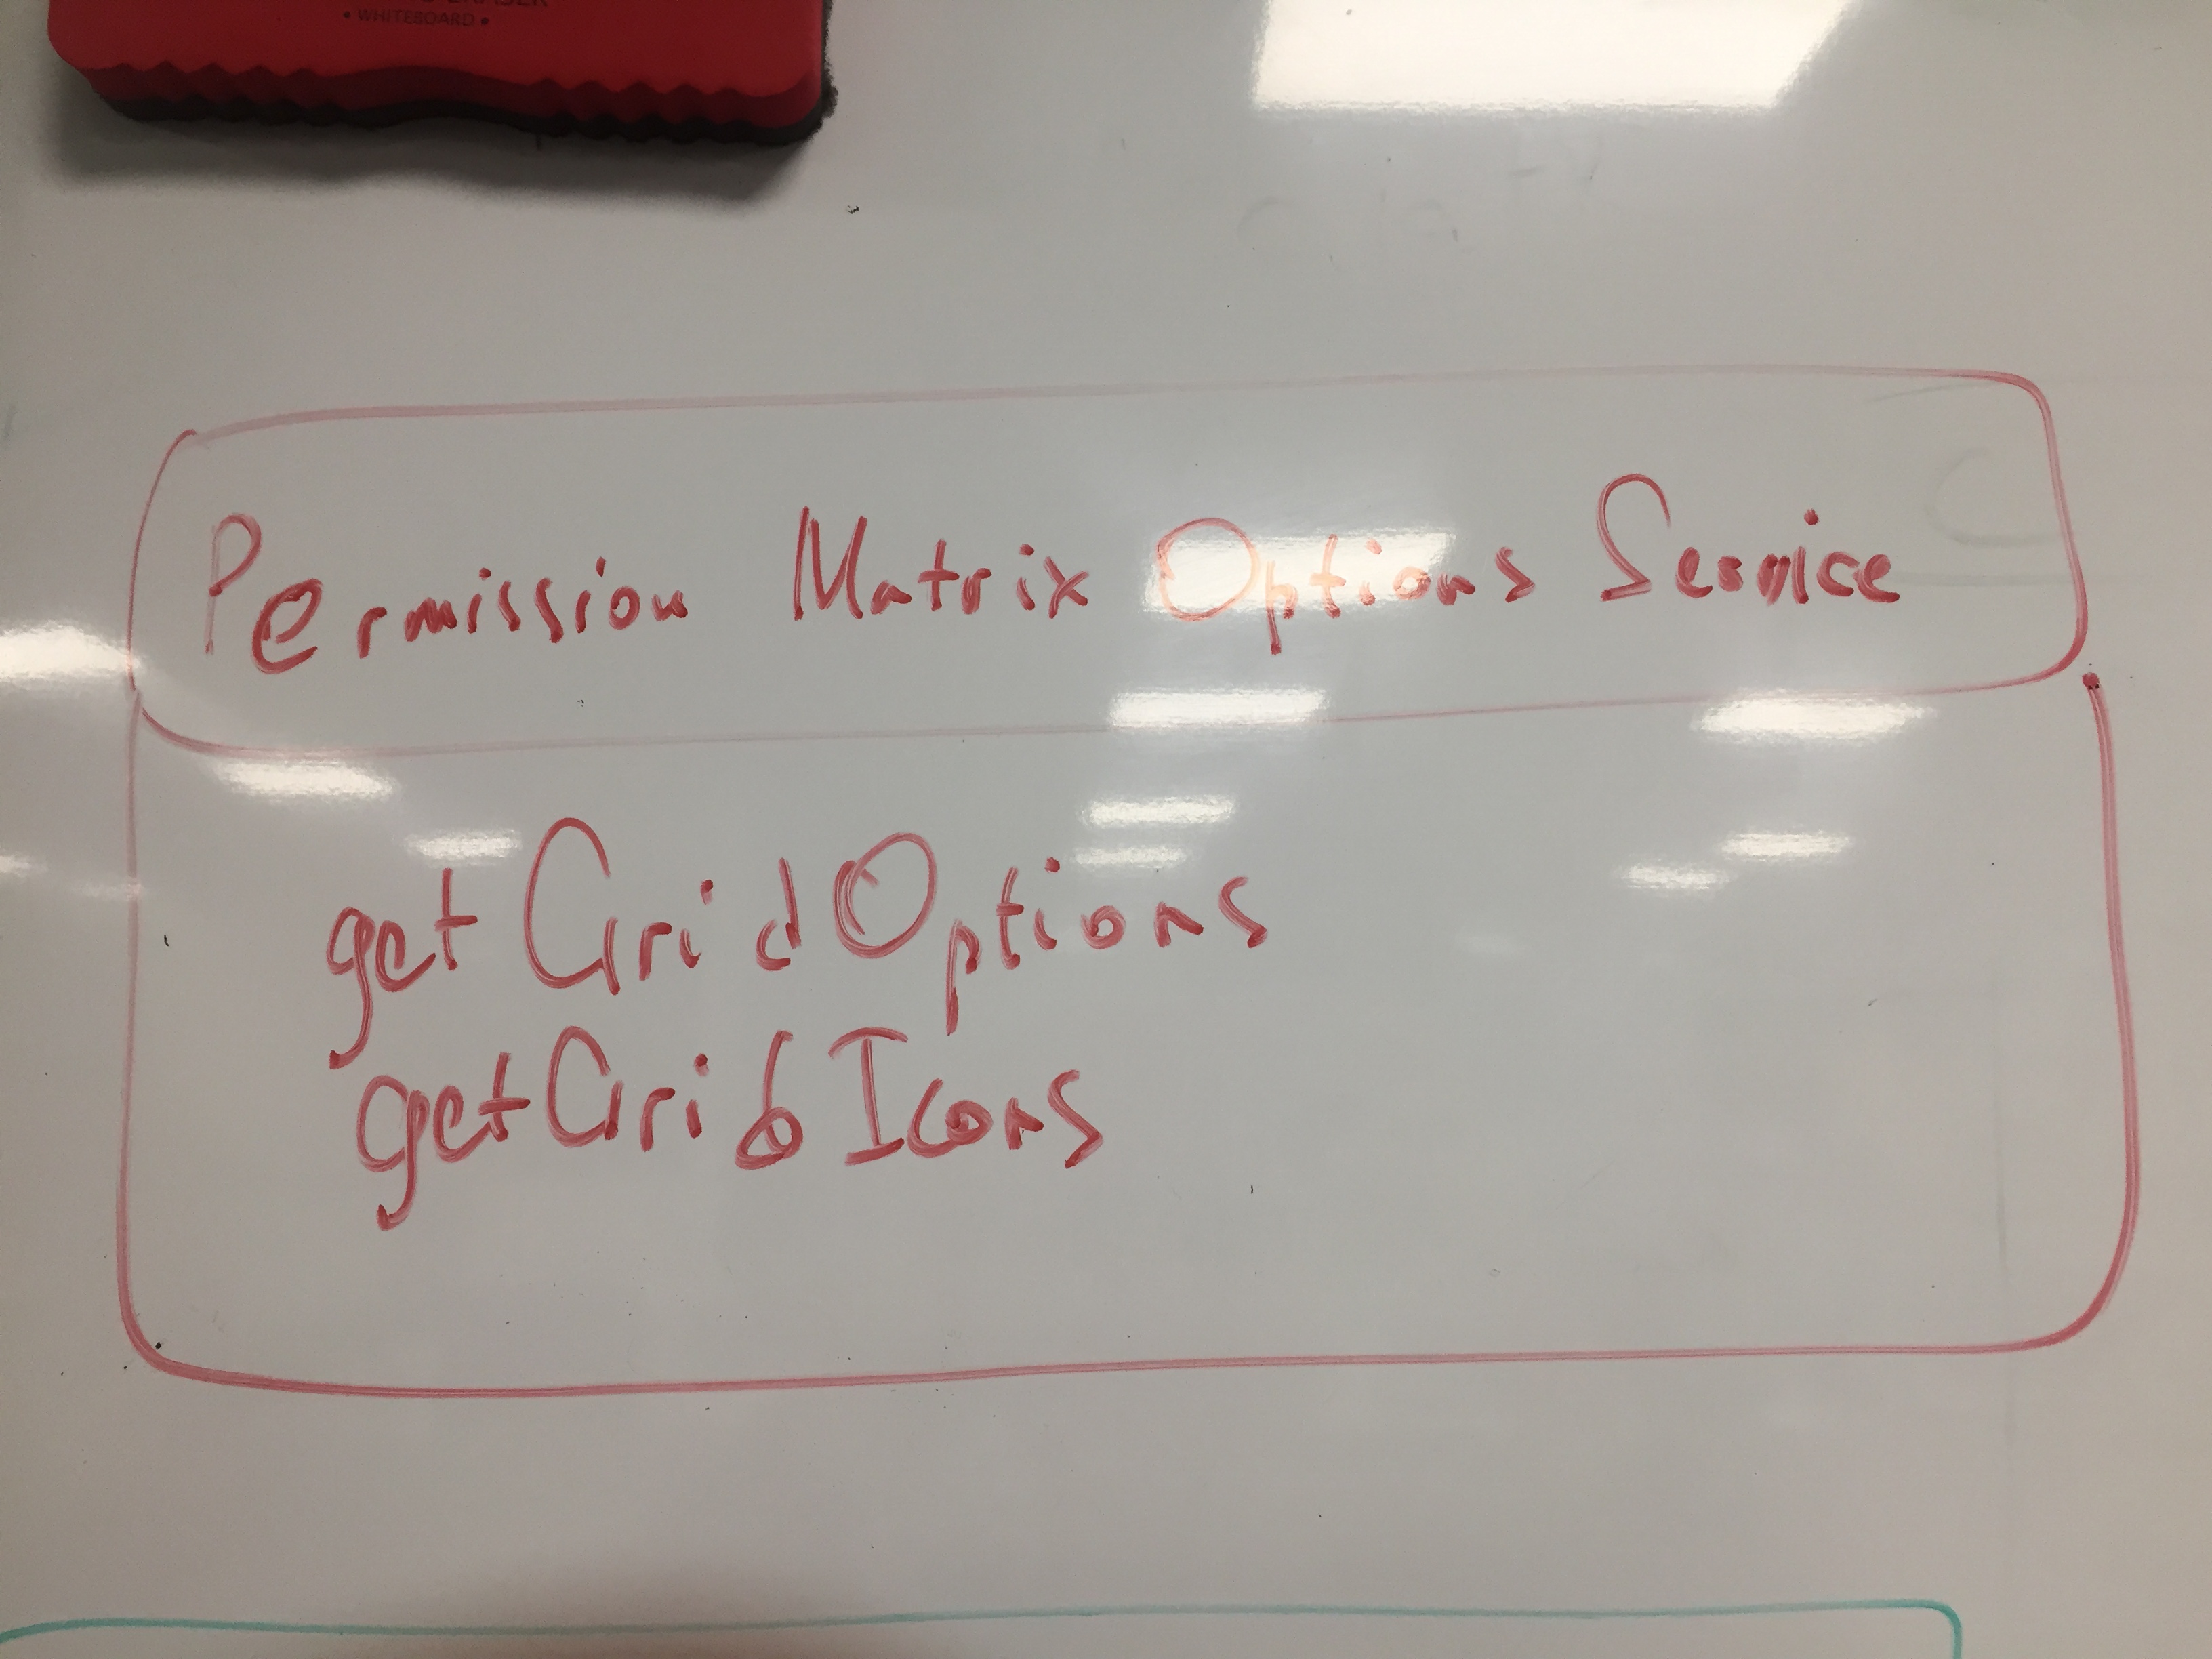 • WHITEBOARD •
Permission Matrix Options Service
getGridOptions
getGridIcons